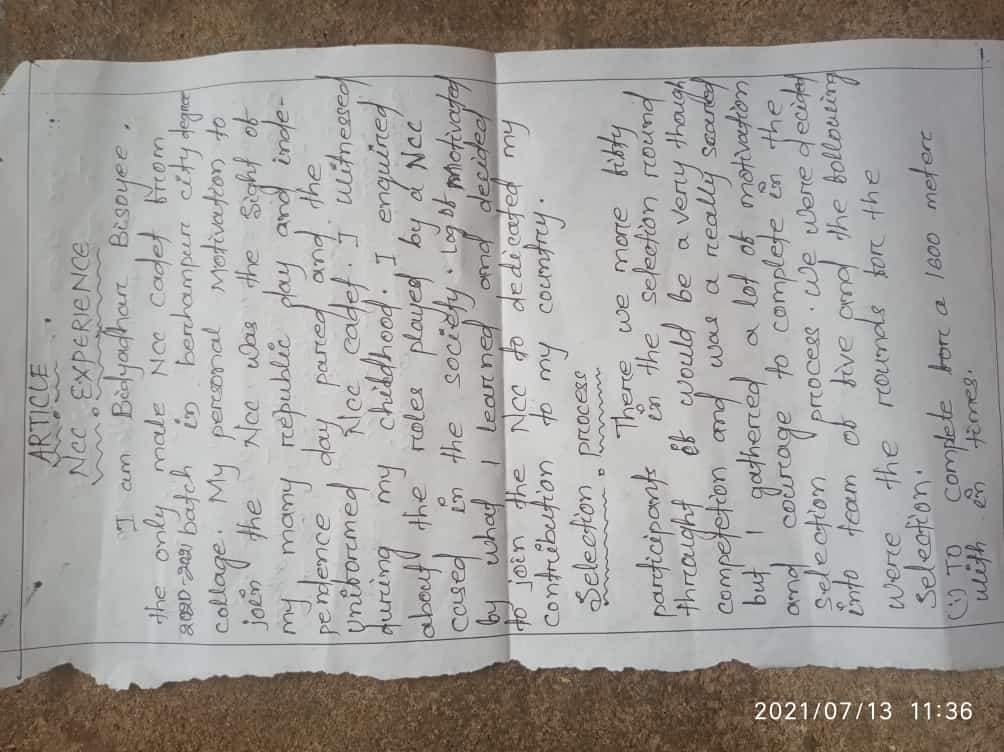 ARTICLE
NCC EXPERIENCE
I am Bidyadhar Bisoyee.
the only male NCC cadet from
batch in berchampur city degree
collage. My personal Motivation to
join the Ncc was the Sight of
my mamy republic day and inde-
pendence day pared and the
uniformed Ncc cadet. I Witnessed
during my childhood. I enquired
about the roles played by a NCC
cased in the society. Motivated
by what I learned and decided
to join the NCC to dedicated my
contribution to my country.
Selection process
There we more fifty
participants in the selection round
throught it would be a very though
competetion and was a really scarted
but I gatherred a lot of motivation
and courage to complete in the
Selection process. We were decided
into team of five and the following
were the rounds for the
Selection.
(i) TO complete a 1600 meterc
with in times.
2021/07/13 11:36